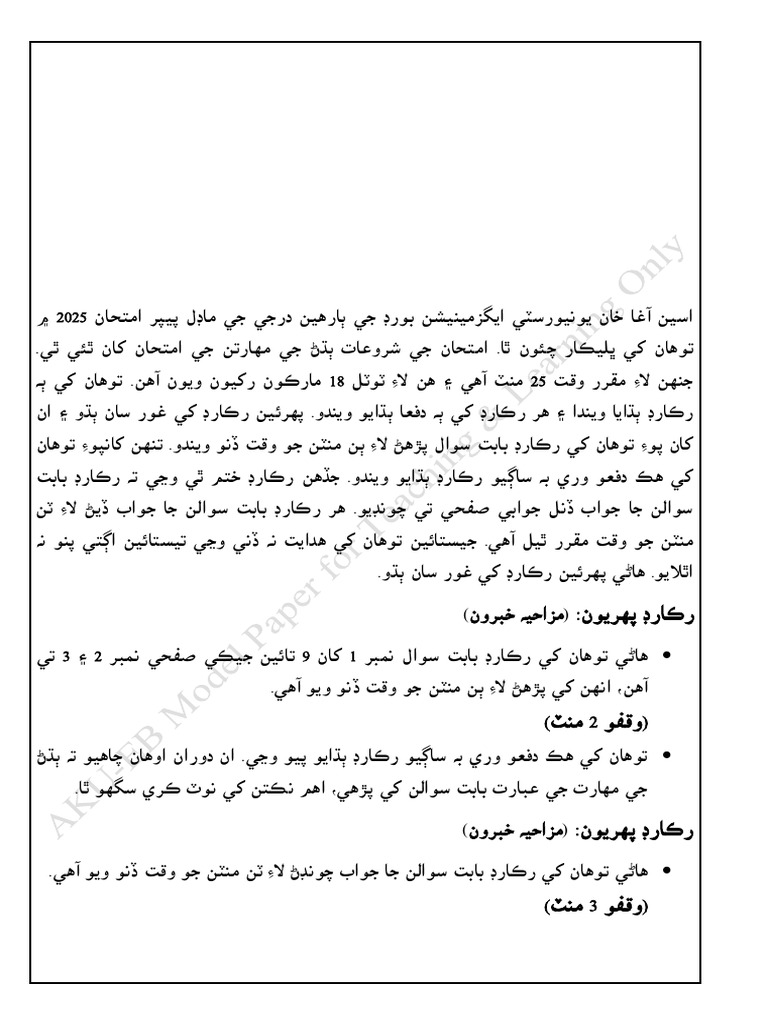 اسين آغا خان يونيورسٽي ايگزمينيشن بورڊ جي ٻارهين درجي جي ماڊل پيپر امتحان 2025 ۾
توهان کي ڀليڪار چئون ٿا. امتحان جي شروعات ٻڌڻ جي مهارتن جي امتحان کان ٿئي ٿي.
جنهن لاءِ مقرر وقت 25 منٽ آهي ۽ هن لاءِ ٽوٽل 18 مارڪون رکيون ويون آهن. توهان کي ٻہ
رڪارڊ ٻڌايا ويندا ۽ هر رڪارڊ کي ٻہ دفعا ٻڌايو ويندو. پهرئين رڪارڊ کي غور سان ٻڌو ۽ ان
کان پوءِ توهان کي رڪارڊ بابت سوال پڙهڻ لاءِ ٻن منٽن جو وقت ڏنو ويندو. تنهن کانپوءِ توهان
کي هڪ دفعو وري بہ ساڳيو رڪارڊ ٻڌايو ويندو. جڏهن رڪارڊ ختم ٿي وڃي تہ رڪارڊ بابت
سوالن جا جواب ڏنل جوابي صفحي تي چونڊيو. هر رڪارڊ بابت سوالن جا جواب ڏيڻ لاءِ ٽن
منٽن جو وقت مقرر ٿيل آهي. جيستائين توهان کي هدايت نہ ڏني وڃي تيستائين اڳتي پنو نہ
اٿلايو. هاڻي پهرئين رڪارڊ کي غور سان ٻڌو.
رڪارڊ پهريون: (مزاحيہ خبرون)
• هاڻي توهان کي رڪارڊ بابت سوال نمبر 1 کان 9 تائين جيڪي صفحي نمبر 2 ۽ 3 تي
آهن، انهن کي پڙهڻ لاءِ ٻن منٽن جو وقت ڏنو ويو آهي.
(وقفو 2 منٽ)
• توهان کي هڪ دفعو وري بہ ساڳيو رڪارڊ ٻڌايو پيو وڃي. ان دوران اوهان چاهيو تہ ٻڌڻ
جي مهارت جي عبارت بابت سوالن کي پڙهي، اهم نڪتن کي نوٽ ڪري سگهو ٿا.
رڪارڊ پهريون: (مزاحيہ خبرون)
• هاڻي توهان کي رڪارڊ بابت سوالن جا جواب چونڊڻ لاءِ ٽن منٽن جو وقت ڏنو ويو آهي.
(وقفو 3 منٽ)
AKU-EB Model Paper for Teaching & Learning Only